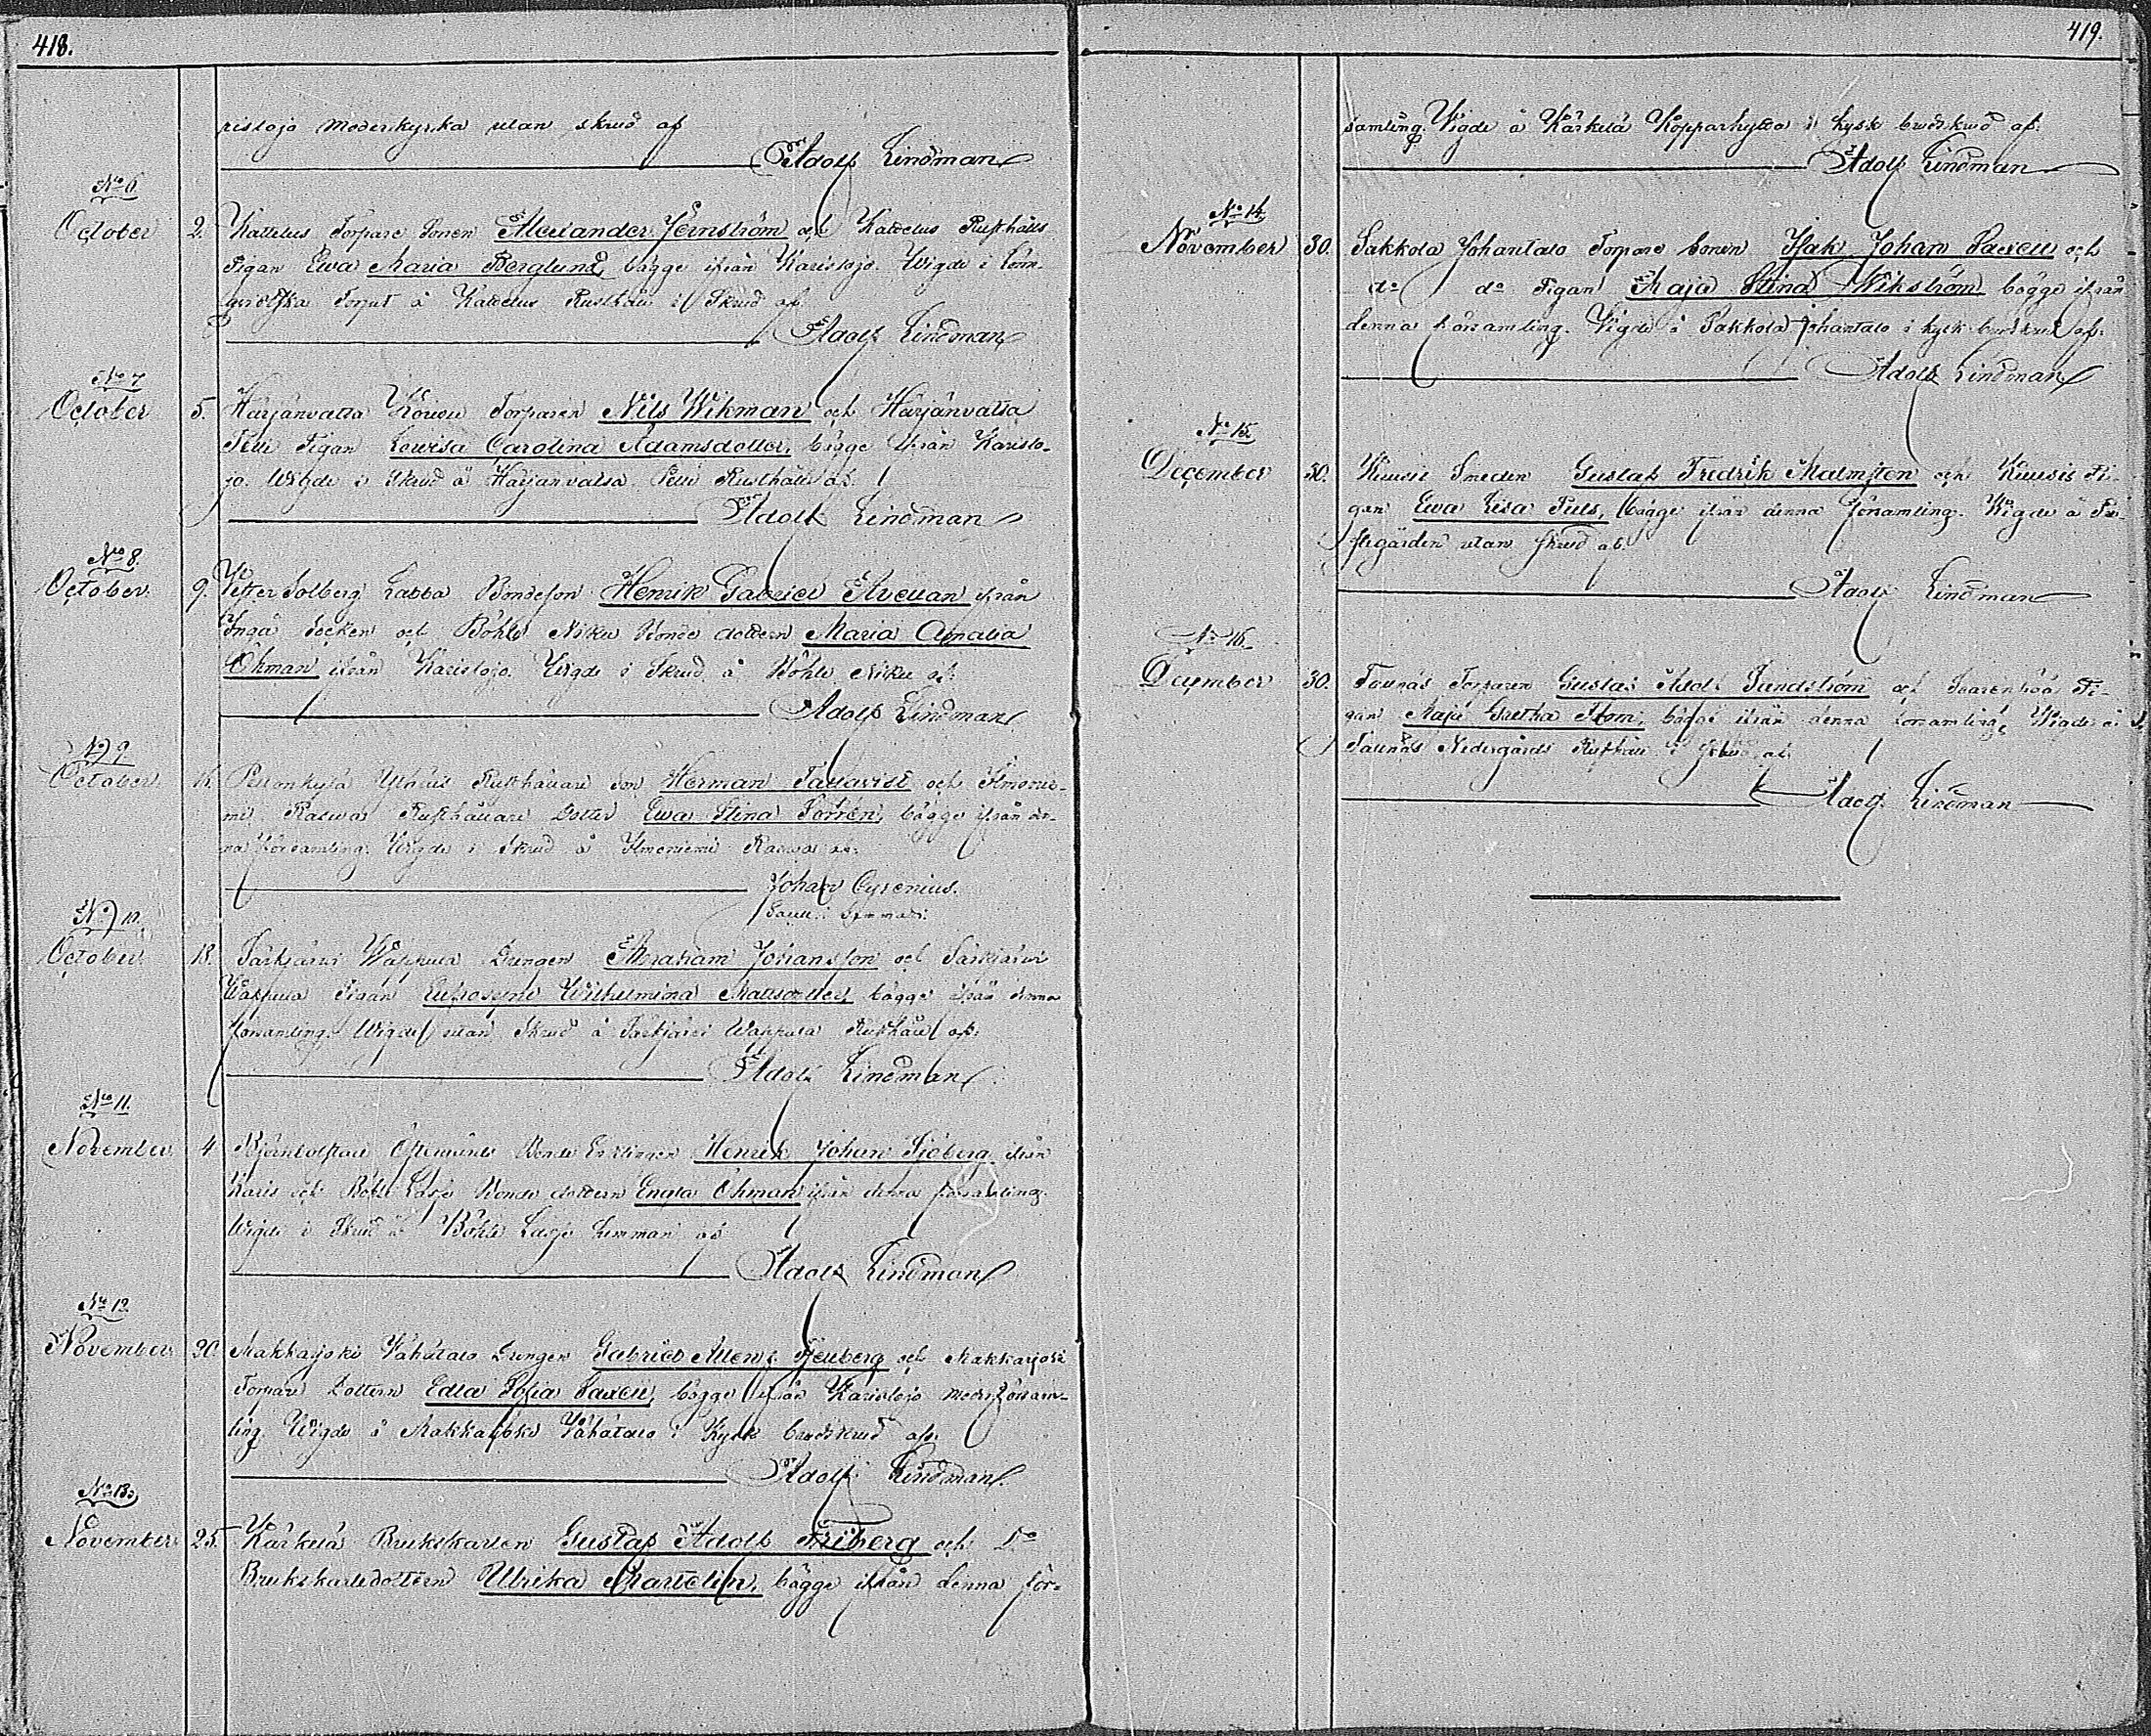 418.
ristojo Moderkyrka utan skrud af
Adolf Lindman
No 6.
October 2. Kattelus Torpare Sonen Alexander Jernström och Kattelus Rusthålls
Pigan Ewa Maria Berglund, bägge ifrån Karislojo. Wigde i
Torpet å Kattelus Rusthåll i Skrud af
Adolf Lindman
No 7
October 5. Härjänvatsa Torparen Nils Wikman och Härjänvatsa
Pigan Lowisa Carolina Adamsdotter, bägge ifrån Karislo-
jo. Wigde i Skrud å Härjänvatsa Rusthåll af
Adolf Lindman
No 8.
October 9. Wester Solberg Labba Bondeson Henrik Gabriel ifrån
Ingå Socken och Böhle Niku Bonde dottern Maria Amalia
Öhman ifrån Karislojo. Wigde i Skrud å Böhle Niku af
Adolf Lindman
No 9
October 16. Rusthållare Son Herman och Ilmonie-
mi Rusthållare Dotter Ewa Stina Torrén, bägge ifrån den-
na församling. Wigde i Skrud å Ilmoniemi af
Johan Cyrenius.
No 10.
October 18. Särkjärvi Drengen Abraham Johansson och Särkjärvi
Pigan Eufrosyne Wilhelmina Mattsdotter, bägge ifrån denna
församling. Wigde utan Skrud å Särkjärvi Rusthåll af
Adolf Lindman
No 11.
November 4 Bonde Enklingen Henrik Johan Sjöberg ifrån
Karis och Böhle Lasse Bonde dottern Engla Öhman ifrån denna församling.
Wigde i Skrud å Böhle Lasse hemman af
Adolf Lindman
No 12.
November 20. Makkarjoki Vähätalo Drengen Gabriel och Makkarjoki
Torpare Dottern Edla Sofia Taxell, bägge ifrån Karislojo moderförsam-
ling. Wigde å Makkarjoki Vähätalo i Kyrk brudskrud af
Adolf Lindman
No 13.
November 25. Kärkelä Brukskarlen Gustaf Adolf Friberg och Do
Brukskarlsdottern Ulrika Martelin, bägge ifrån denna för-
419.
samling. Wigde å Kärkelä Kopparhytta i kyrk brudskrud af
Adolf Lindman
No 14.
November 30. Sakkola Johantalo Torpare Sonen Isak Johan och
do do Pigan Maja Stina Wikström bägge ifrån
denna församling. Wigde å Sakkola Johantalo i kyrk brudskrud af
Adolf Lindman
No 15.
December 30. Smeden Gustaf Fredrik Malmsten och Pi-
gan Ewa Lisa bägge ifrån denna församling. Wigde å
utan skrud af
Adolf Lindman
No 16.
December 30. Torparen Gustaf Adolf Sundström och Pi-
gan Maja Gretha bägge ifrån denna församling, Wigde å
Nedergårds Rusthåll i Skrud af
Adolf Lindman